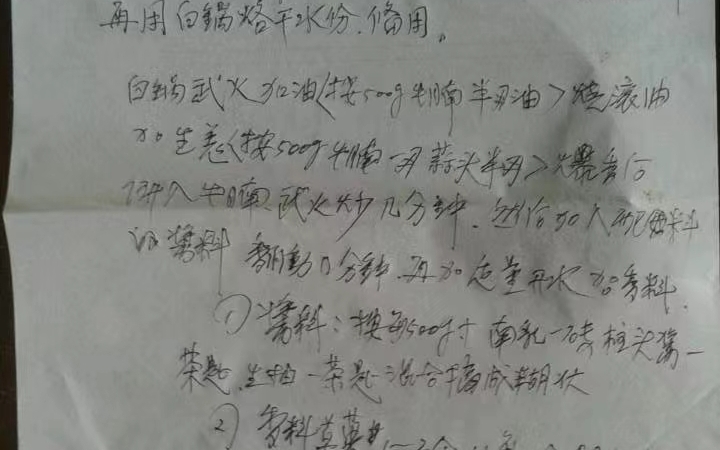 再用白锅烙干水份,备用。
白锅武火加油<按500g牛腩半两油>烧滚油
加生姜<按500g牛腩一两蒜头半两>爆香后
倒入牛腩武火炒几分钟,然后加入配好料
的酱料翻动几分钟,再加适量开水加香料.
①酱料:按每500g 南乳一砖 柱头酱一
茶匙,生抽一茶匙混合搞成糊状
2) 香料草菓